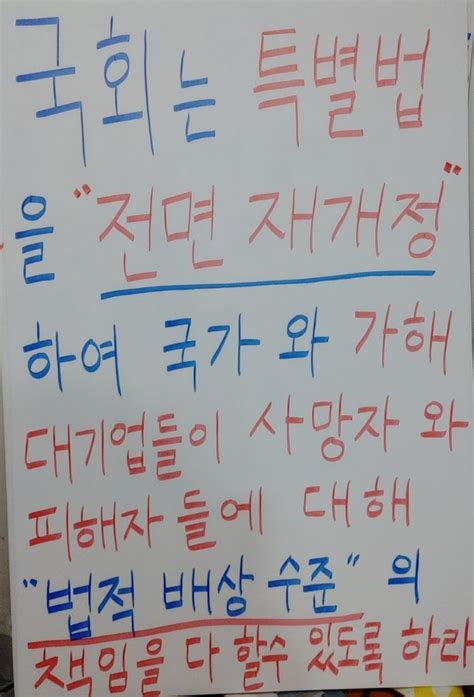 국회는 특별법
을 "전면 재개정"
하여 국가 와 가해
대기업들이 사망자 와
피해자 들에 대해
"법적 배상 수준" 의
책임을 다 할수 있도록 하라